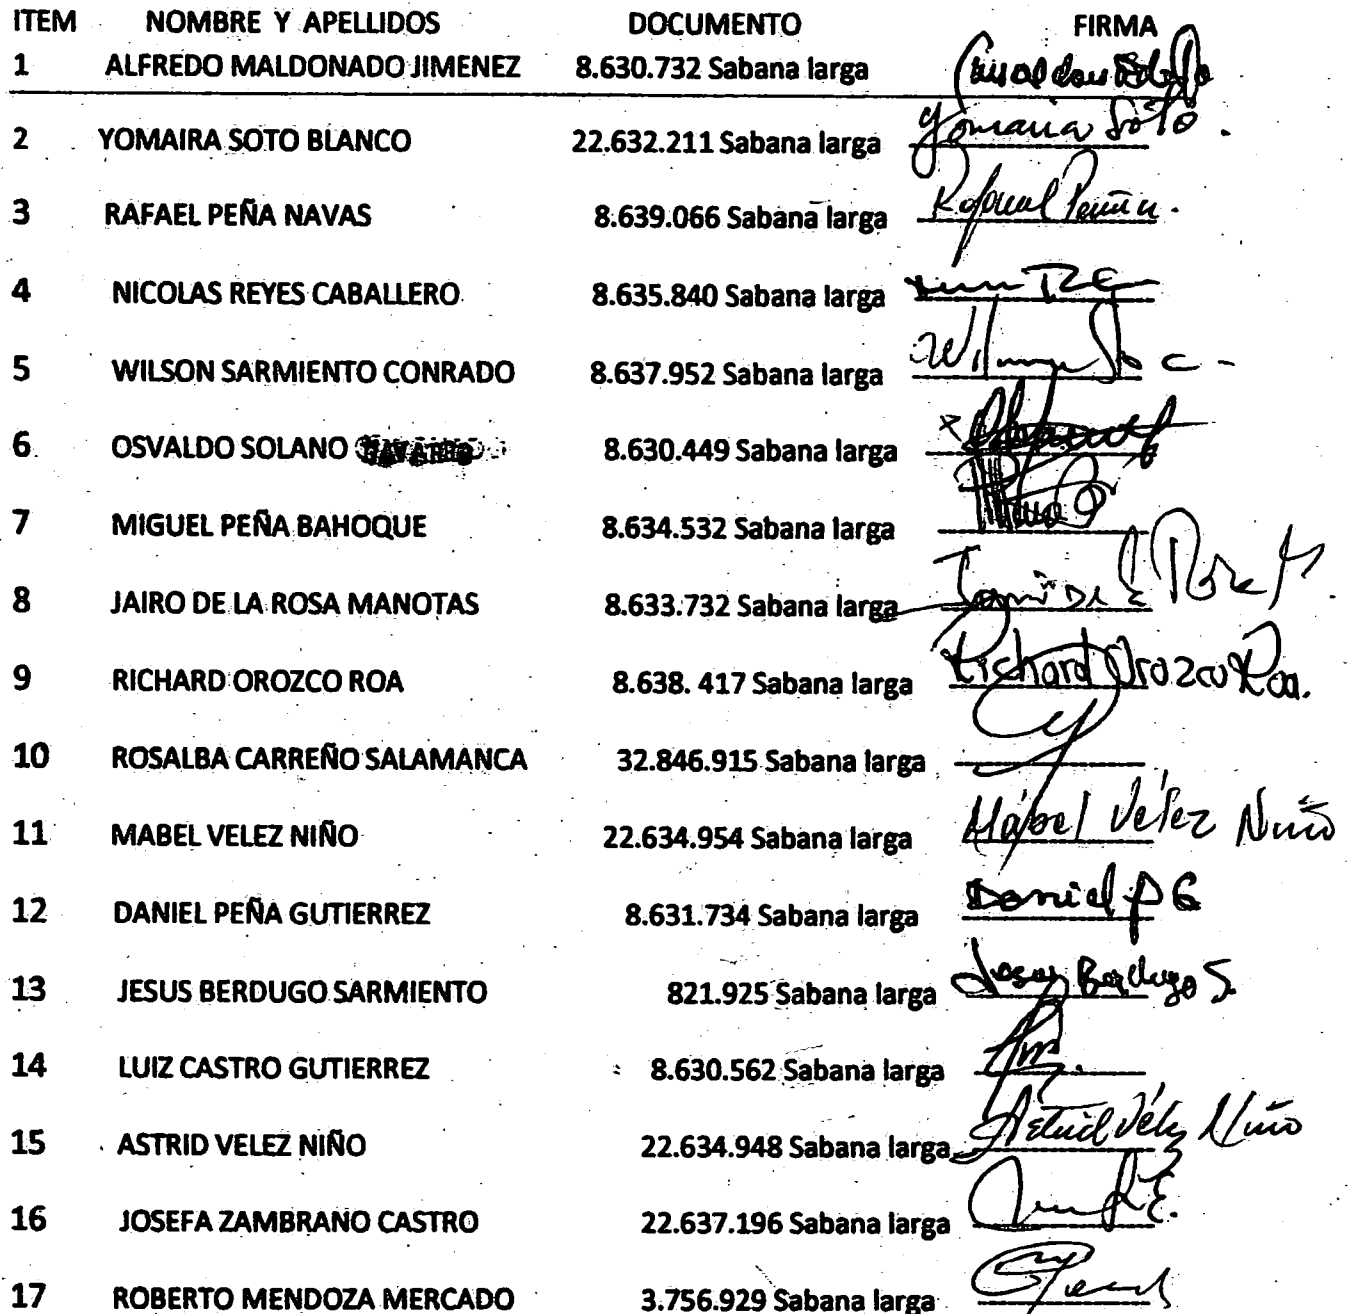 ITEM NOMBRE Y APELLIDOS DOCUMENTO FIRMA
1 ALFREDO MALDONADO JIMENEZ 8.630.732 Sabana larga
2 YOMAIRA SOTO BLANCO 22.632.211 Sabana larga Yomaira Soto.
3 RAFAEL PEÑA NAVAS 8.639.066 Sabana larga Rafael Peña.
4 NICOLAS REYES CABALLERO 8.635.840 Sabana larga
5 WILSON SARMIENTO CONRADO 8.637.952 Sabana larga
6 OSVALDO SOLANO 8.630.449 Sabana larga
7 MIGUEL PEÑA BAHOQUE 8.634.532 Sabana larga
8 JAIRO DE LA ROSA MANOTAS 8.633.732 Sabana larga
9 RICHARD OROZCO ROA 8.638. 417 Sabana larga Richard Orozco Roa.
10 ROSALBA CARREÑO SALAMANCA 32.846.915 Sabana larga
11 MABEL VELEZ NIÑO 22.634.954 Sabana larga Mábel Vélez Niño
12 DANIEL PEÑA GUTIERREZ 8.631.734 Sabana larga Daniel P G
13 JESUS BERDUGO SARMIENTO 821.925 Sabana larga Jesus Berdugo S.
14 LUIZ CASTRO GUTIERREZ 8.630.562 Sabana larga
15 ASTRID VELEZ NIÑO 22.634.948 Sabana larga Astrid Vélez Niño
16 JOSEFA ZAMBRANO CASTRO 22.637.196 Sabana larga
17 ROBERTO MENDOZA MERCADO 3.756.929 Sabana larga